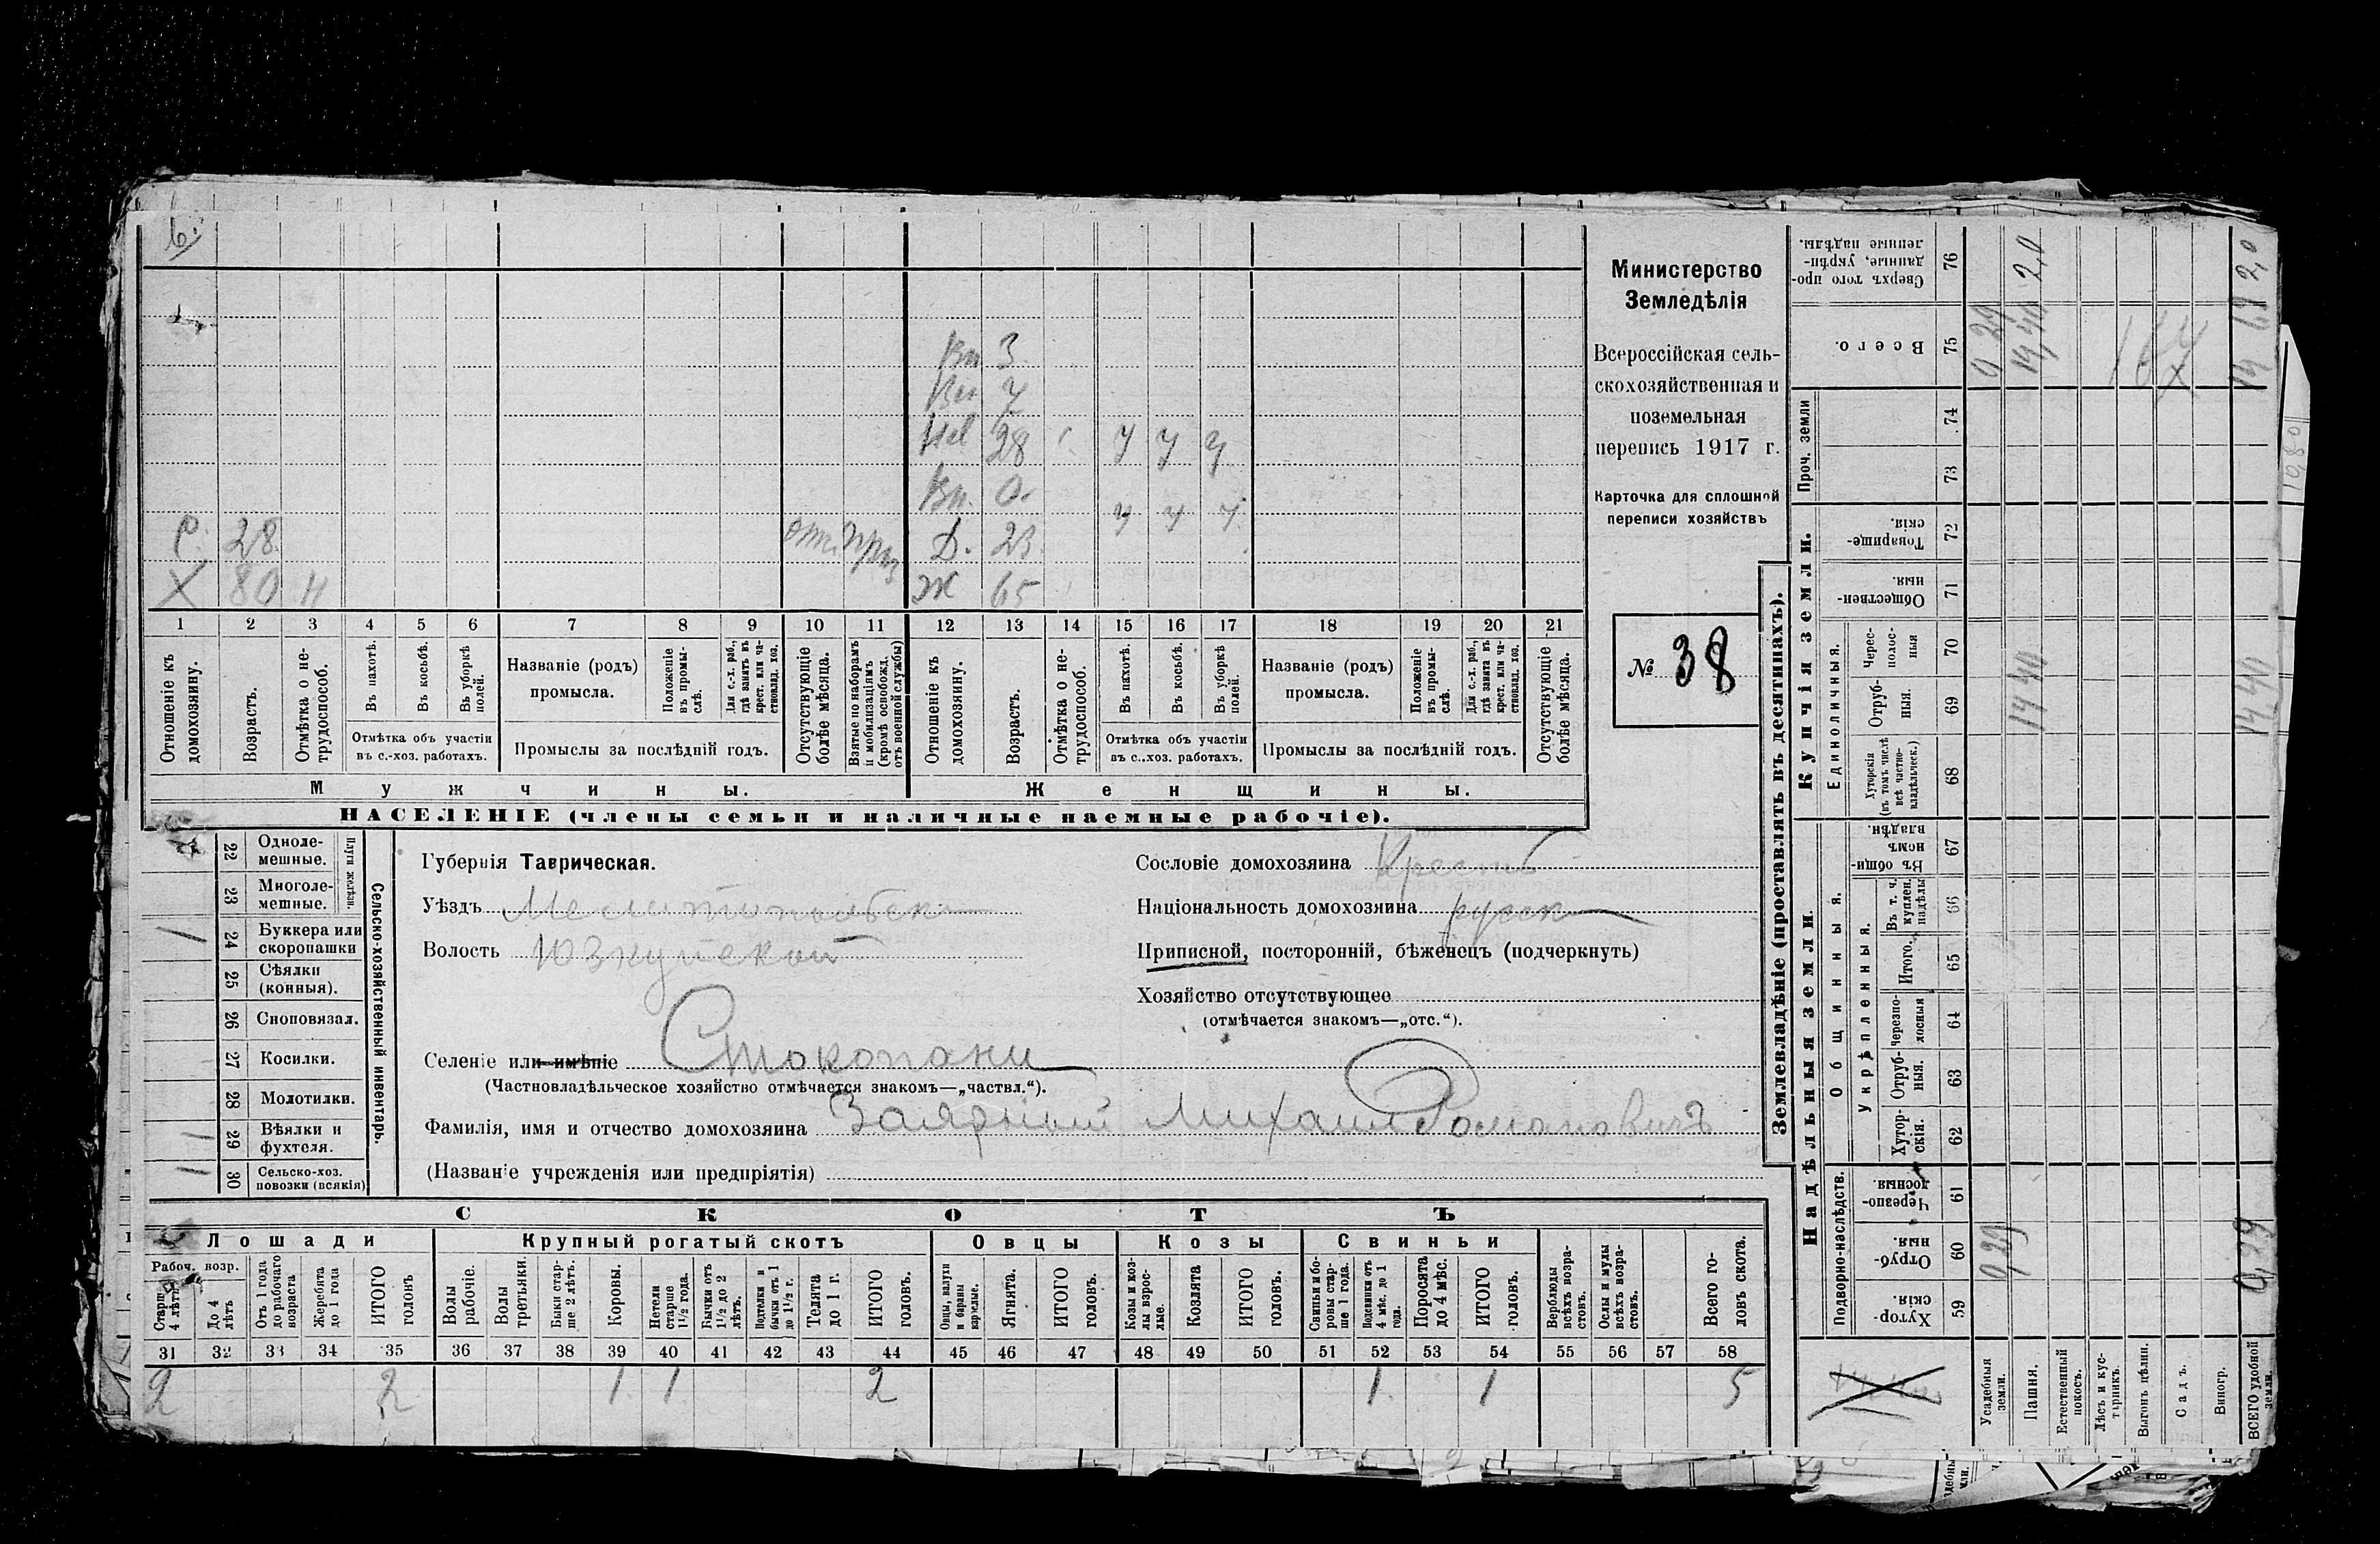 6.
Вн 3
Вн 7
Нев 28 У У У
Вн. 0.
С. 28. отс. приз Д. 23. У У У
Х 80 Н Ж 65
1 2 3 4 5 6 7 8 9 10 11 12 13 14 15 16 17 18 19 20 21
Отношеніе къ домохозяину.
Возрастъ.
Отмѣтка о не-трудоспособ.
Въ пахотѣ.
Въ косьбѣ.
Въ уборкѣ полей.
Отмѣтка объ участіи въ с.-хоз. работахъ.
Названіе (родъ) промысла.
Положеніе въ промы-слѣ.
Для с.-х. раб., гдѣ занятъ въ крест. или ча-стновлад. хоз.
Промыслы за послѣдній годъ.
Отсутствующіе болѣе мѣсяца.
Взятые по наборамъ и мобилизаціямъ (кромѣ освобожд. отъ военной службы)
Отношеніе къ домохозяину.
Возрастъ.
Отмѣтка о не-трудоспособ.
Въ пахотѣ.
Въ косьбѣ.
Въ уборкѣ полей.
Отмѣтка объ участіи въ с.-хоз. работахъ.
Названіе (родъ) промысла.
Положеніе въ промы-слѣ.
Для с.-х. раб., гдѣ занята въ крест. или ча-стновлад. хоз.
Промыслы за послѣдній годъ.
Отсутствующіе болѣе мѣсяца.
Мужчины. Женщины.
НАСЕЛЕНІЕ (члены семьи и наличные наемные рабочіе).
Министерство
Земледѣлія
Всероссійская сель-
скохозяйственная и
поземельная
перепись 1917 г.
Карточка для сплошной
переписи хозяйствъ
№ 38
Сельско-хозяйственный инвентарь.
Плуги желѣзн.
22 Одноле-мешные.
23 Многоле-мешные.
1 24 Буккера или скоропашки
25 Сѣялки (конныя).
26 Сноповязал.
27 Косилки.
28 Молотилки.
29 Вѣялки и фухтеля.
30 Сельско-хоз. повозки (всякія)
Губернія Таврическая.
Уѣздъ Мелитопольск
Волость Юзкуйской
Селеніе или имѣніе Стокопани
(Частновладѣльческое хозяйство отмѣчается знакомъ—„частвл.“).
Фамилія, имя и отчество домохозяина Заярный Михаил Романовичъ
(Названіе учрежденія или предпріятія)
Сословіе домохозяина Крестьб
Національность домохозяина русск
Приписной, посторонній, бѣженецъ (подчеркнуть)
Хозяйство отсутствующее
(отмѣчается знакомъ—„отс.“).
СКОТЪ
Лошади Крупный рогатый скотъ Овцы Козы Свиньи
Рабоч. возр.
Старш. 4 лѣтъ
До 4 лѣтъ
Отъ 1 года до рабочаго возраста
Жеребята до 1 года
ИТОГО головъ
Волы рабочіе.
Волы третьяки.
Быки стар-ше 2 лѣтъ.
Коровы.
Нетели старше 1½ года.
Бычки отъ 1½ до 2 лѣтъ.
Подтелки и бычки отъ 1 до 1½ г.
Телята до 1 г.
ИТОГО головъ.
Овцы, валухи и бараны взрослые.
Ягнята.
ИТОГО головъ.
Козы и коз-лы взрос-лые.
Козлята
ИТОГО головъ.
Свиньи и бо-ровы стар-ше 1 года.
Подсвинки отъ 4 мѣс. до 1 года.
Поросята до 4 мѣс.
ИТОГО головъ.
Верблюды всѣхъ возра-стовъ.
Ослы и мулы всѣхъ возра-стовъ.
Всего го-ловъ скота.
31 32 33 34 35 36 37 38 39 40 41 42 43 44 45 46 47 48 49 50 51 52 53 54 55 56 57 58
2 2 1 1 2 1 1 5
Землевладѣніе (проставлять въ десятинахъ).
Надѣльныя земли. Купчія земли. Проч. земли
Подворно-наслѣдств. Общинныя. Единоличныя.
Укрѣпленныя.
59 Хутор-скія.
60 Отруб-ныя.
61 Черезпо-лосныя.
62 Хутор-скія.
63 Отруб-ныя.
64 Черезпо-лосныя
65 Итого.
66 Въ т. ч. куплен. надѣлы
67 Въ общи-номъ владѣн.
68 Хуторскія (въ томъ числѣ всѣ частно-владѣльческ.)
69 Отруб-ныя.
70 Черес-полос-ныя
71 Обществен-ныя.
72 Товарище-скія.
73
74
75 Всего.
76 Сверхъ того про-данные, укрѣп-ленные надѣлы.
Усадебныя земли. 0,29 0 29
Пашня. 14 40 14,40 2,0
Естественный покосъ.
Лѣсъ и кус-тарникъ.
Выгонъ цѣлин.
Садъ.
Виногр.
ВСЕГО удобной земли. 0,29 14,40 14 69 2,0
10,80